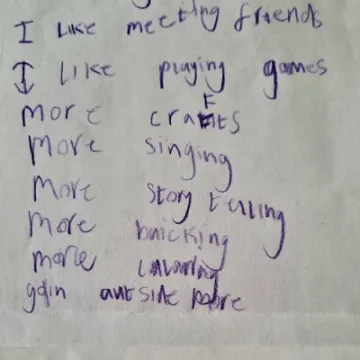 I like meeting friends
I like playing games
more crafts
more singing
more story telling
more baicking
more
goin outside more